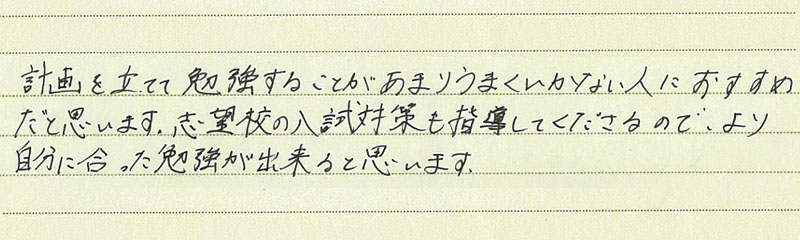 計画を立てて勉強することがあまりうまくいかない人におすすめ
だと思います。志望校の入試対策も指導してくださるので、より
自分に合った勉強が出来ると思います。